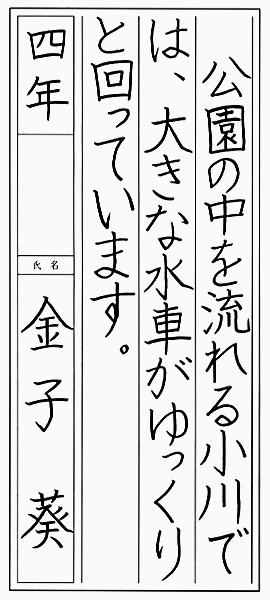 公園の中を流れる小川で
は、大きな水車がゆっくり
と回っています。
四年
氏名
金子 葵